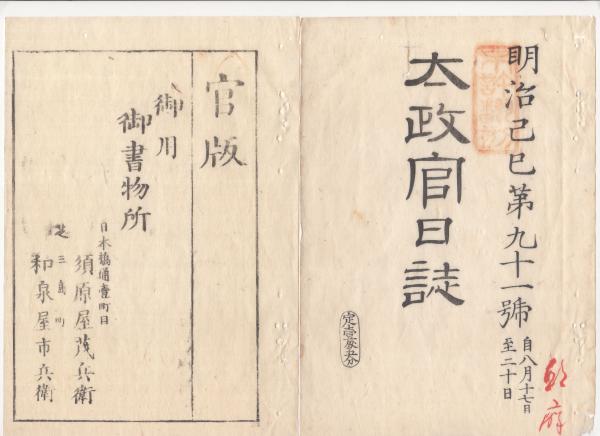 明治己巳第九十一號
自八月十七日
至二十日
太政官日誌
官版
御用
御書物所
日本橋通壹町目
須原屋茂兵衛
芝三島町
和泉屋市兵衛